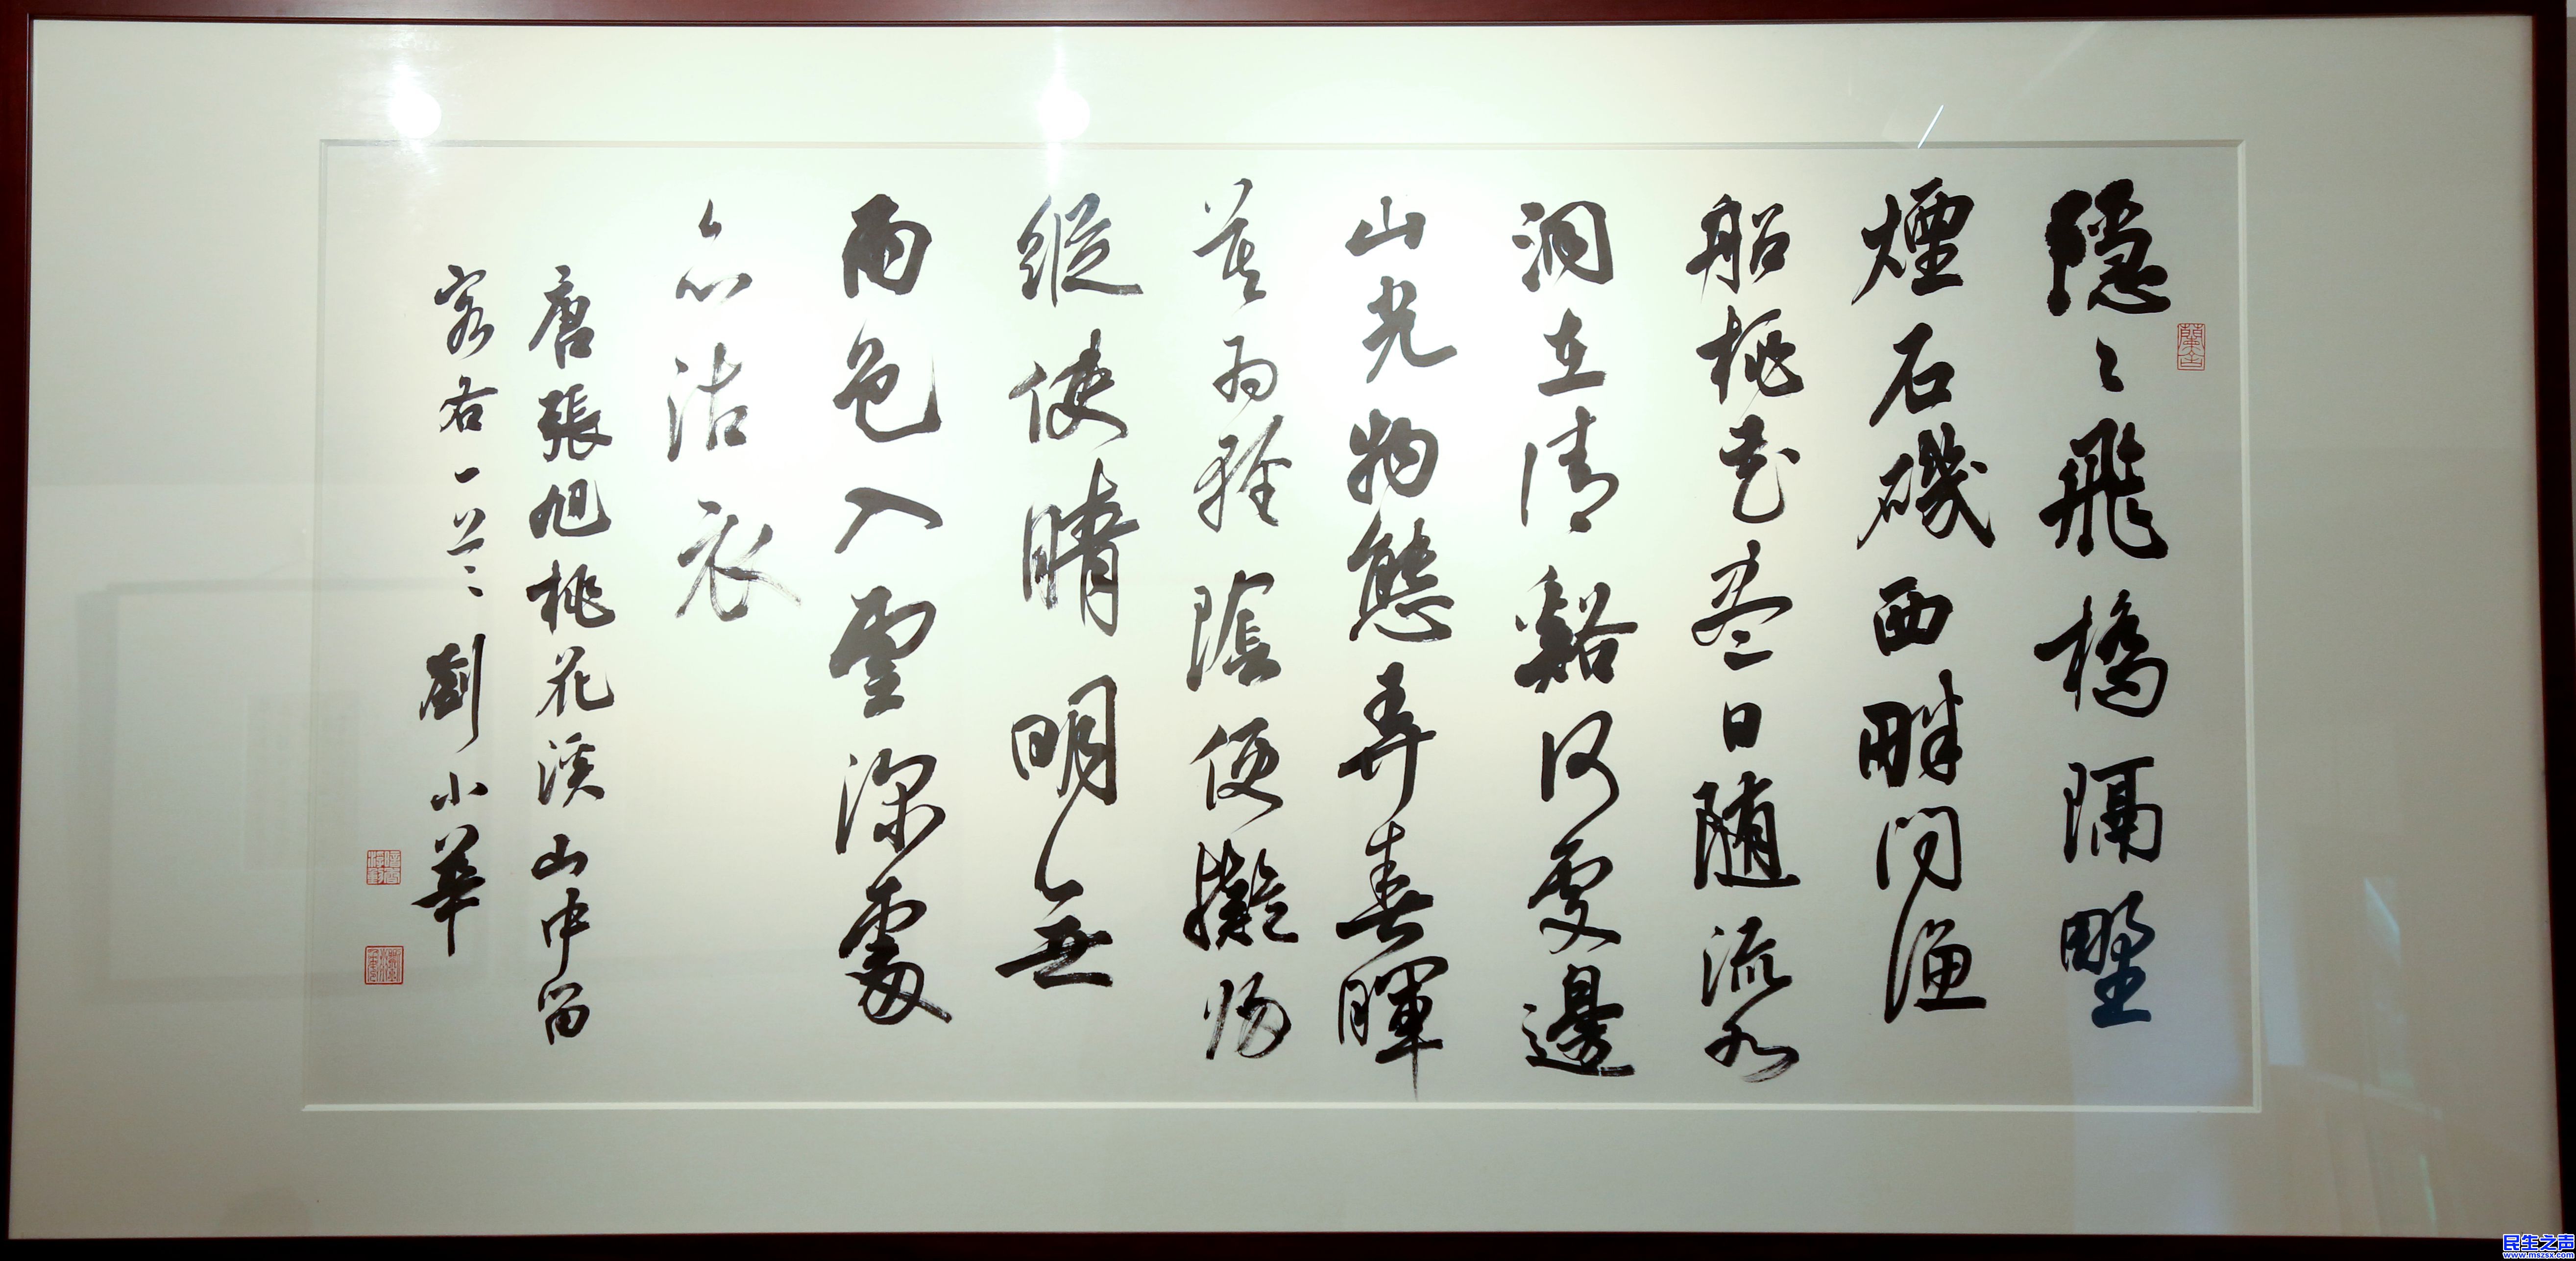 隐〻飛橋隔野
煙石磯西畔问漁
船桃花盡日随流水
洞在清谿何處邊
山光物態弄春暉
莫為輕陰便擬歸
縱使晴明無
雨色入雲深處
亦沾衣
唐張旭桃花溪山中留
客右一首 劉小華
民生之声
www.mszsx.com